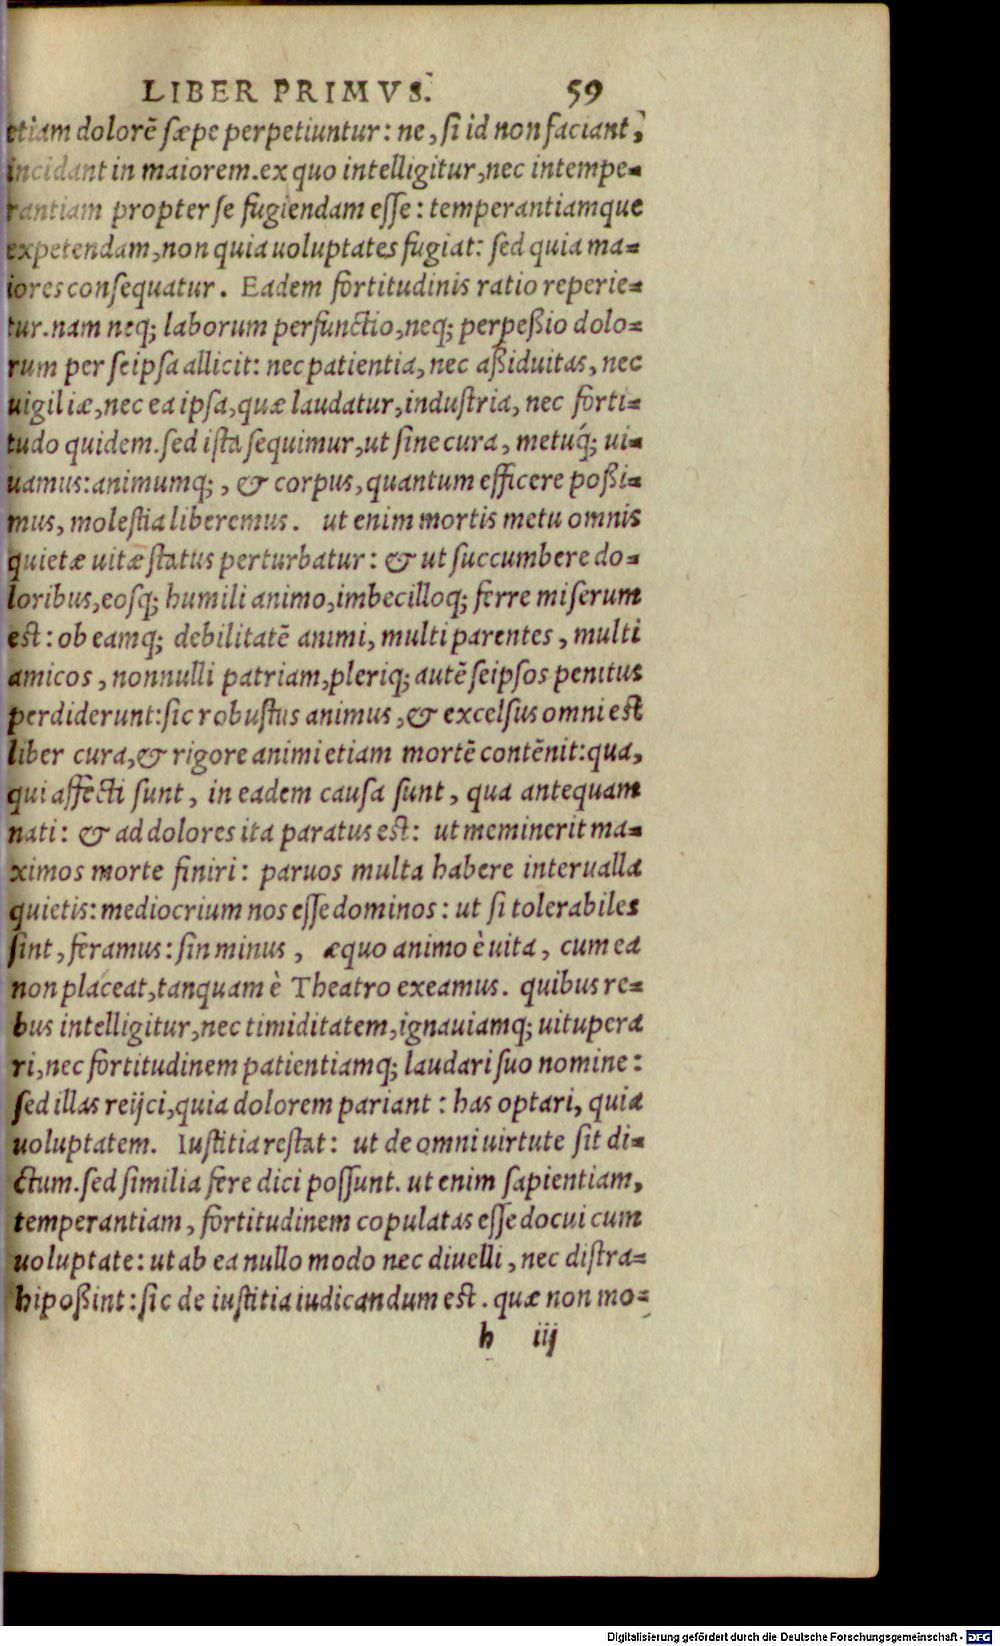 LIBER PRIMVS. 59
etiam dolorē sæpe perpetiuntur: ne, si id non faciant,
incidant in maiorem. ex quo intelligitur, nec intempe-
rantiam propter se fugiendam esse: temperantiamque
expetendam, non quia uoluptates fugiat: sed quia ma-
iores consequatur. Eadem fortitudinis ratio reperie-
tur. nam neq; laborum perfunctio, neq; perpeßio dolo-
rum per seipsa allicit: nec patientia, nec aßiduitas, nec
uigiliæ, nec ea ipsa, quæ laudatur, industria, nec forti-
tudo quidem. sed ista sequimur, ut sine cura, metuq́; ui-
uamus: animumq; , & corpus, quantum efficere poßi-
mus, molestia liberemus. ut enim mortis metu omnis
quietæ uitæ status perturbatur: & ut succumbere do-
loribus, eosq; humili animo, imbecilloq; ferre miserum
est: ob eamq; debilitatē animi, multi parentes, multi
amicos, nonnulli patriam, pleriq; autē seipsos penitus
perdiderunt: sic robustus animus, & excelsus omni est
liber cura, & rigore animi etiam mortē contēnit: qua,
qui affecti sunt, in eadem causa sunt, qua antequam
nati: & ad dolores ita paratus est: ut meminerit ma-
ximos morte finiri: paruos multa habere interualla
quietis: mediocrium nos esse dominos: ut si tolerabiles
sint, feramus: sin minus, æquo animo è uita, cum ea
non placeat, tanquam è Theatro exeamus. quibus re-
bus intelligitur, nec timiditatem, ignauiamq; uitupera
ri, nec fortitudinem patientiamq; laudari suo nomine:
sed illas reijci, quia dolorem pariant: has optari, quia
uoluptatem. Iustitia restat: ut de omni uirtute sit di-
ctum. sed similia fere dici possunt. ut enim sapientiam,
temperantiam, fortitudinem copulatas esse docui cum
uoluptate: ut ab ea nullo modo nec diuelli, nec distra-
hi poßint: sic de iustitia iudicandum est. quæ non mo-
h iij
Digitalisierung gefördert durch die Deutsche Forschungsgemeinschaft - DFG